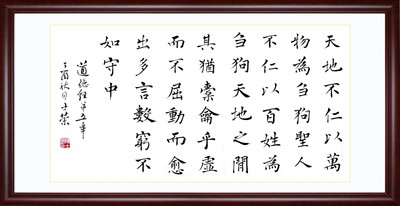 天地不仁以萬
物為刍狗聖人
不仁以百姓為
刍狗天地之間
其猶橐龠乎虛
而不屈動而愈
出多言數窮不
如守中
道德经第五章
丁酉秋月士榮